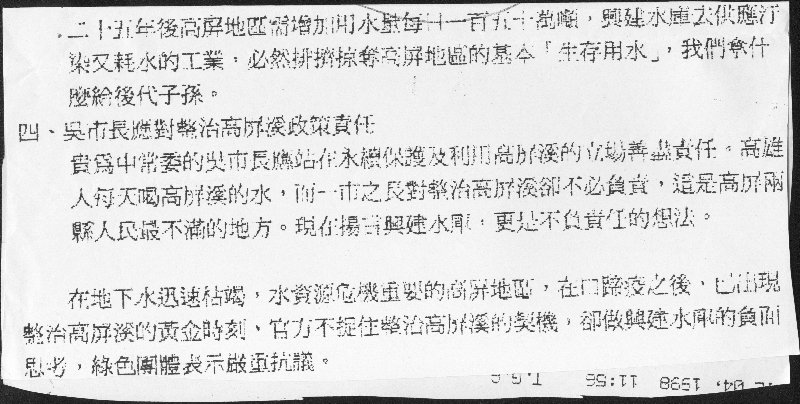 二十五年後高屏地區需增加用水量每日一百五十萬噸，興建水庫去供應汙
染又耗水的工業，必然排擠掠奪高屏地區的基本「生存用水」，我們拿什
麼給後代子孫。
四、吳市長應對整治高屏溪政策責任
貴為中常委的吳市長應站在永續保護及利用高屏溪的立場善盡責任。高雄
人每天喝高屏溪的水，而一市之長對整治高屏溪卻不必負責，這是高屏兩
縣人民最不滿的地方。現在揚言興建水庫，更是不負責任的想法。
在地下水迅速枯竭，水資源危機重要的高屏地區，在口蹄疫之後，已出現
整治高屏溪的黃金時刻、官方不捉住整治高屏溪的契機，卻做興建水庫的負面
思考，綠色團體表示嚴重抗議。
04, 1998 11:56